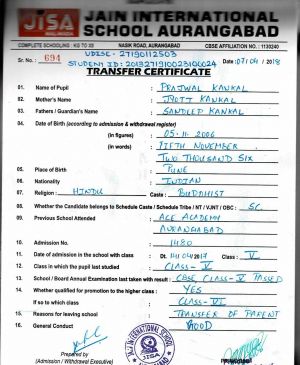 JISA
JAIN INTERNATIONAL
SCHOOL AURANGABAD
COMPLETE SCHOOLING : KG TO XII NASIK ROAD, AURANGABAD CBSE AFFILIATION NO. : 1130240
UDISE - 27190112503
Sr. No. : 694 STUDENT ID: Date :
TRANSFER CERTIFICATE
01. Name of Pupil PRAJWAL KANKAL
02. Mother's Name JYOTI KANKAL
03. Fathers / Guardian's Name SANDEEP KANKAL
04. Date of Birth (according to admission & withdrawal register)
(in figures) 05-11-2006
(in words) FIFTH NOVEMBER
TWO THOUSAND SIX
05. Place of Birth PUNE
06. Nationality INDIAN
07. Religion : HINDU Caste : BUDDHIST
08. Whether the Candidate belongs to Schedule Caste / Schedule Tribe / NT / VJNT / OBC : SC
09. Previous School Attended ACE ACADEMY
AURANGABAD
10. Admission No. 1420
11. Date of admission in the school with class Dt. Class : V
12. Class in which the pupil last studied CLASS-V
13. School / Board Annual Examination last taken with result : CBSE CLASS-V PASSED
14. Whether qualified for promotion to the higher class : YES
If so to which class CLASS-VI
15. Reasons for leaving school TRANSFER OF PARENT
16. General Conduct GOOD
JISA
Prepared by
(Admission / Withdrawal Executive)